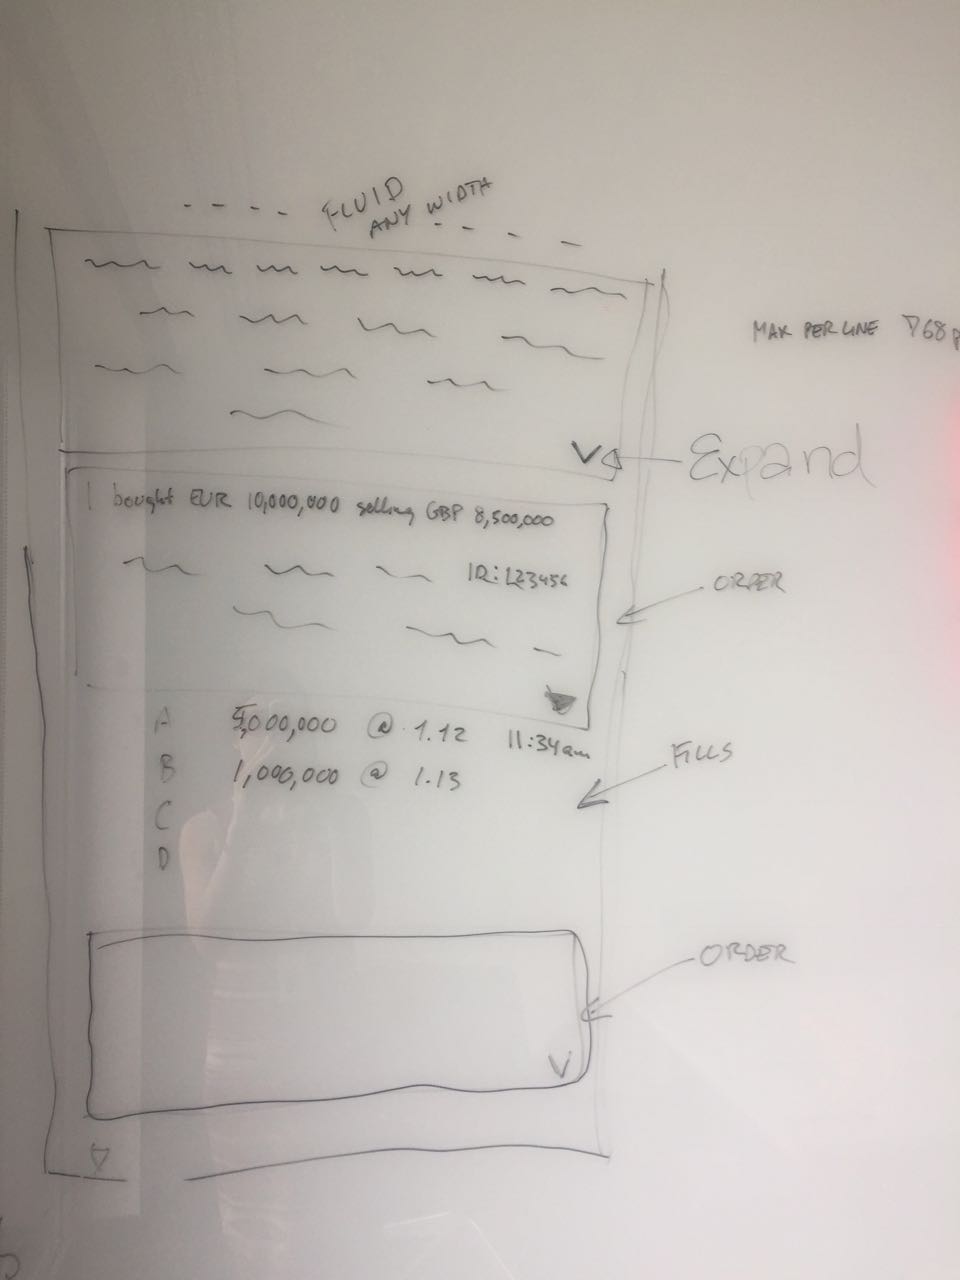 FLUID
ANY WIDTH
MAX PER LINE 768p
Expand
I bought EUR 10,000,000 selling GBP 8,500,000
ID: 123456
ORDER
A 5,000,000 @ 1.12 11:34am
FILLS
B 1,000,000 @ 1.13
C
D
ORDER